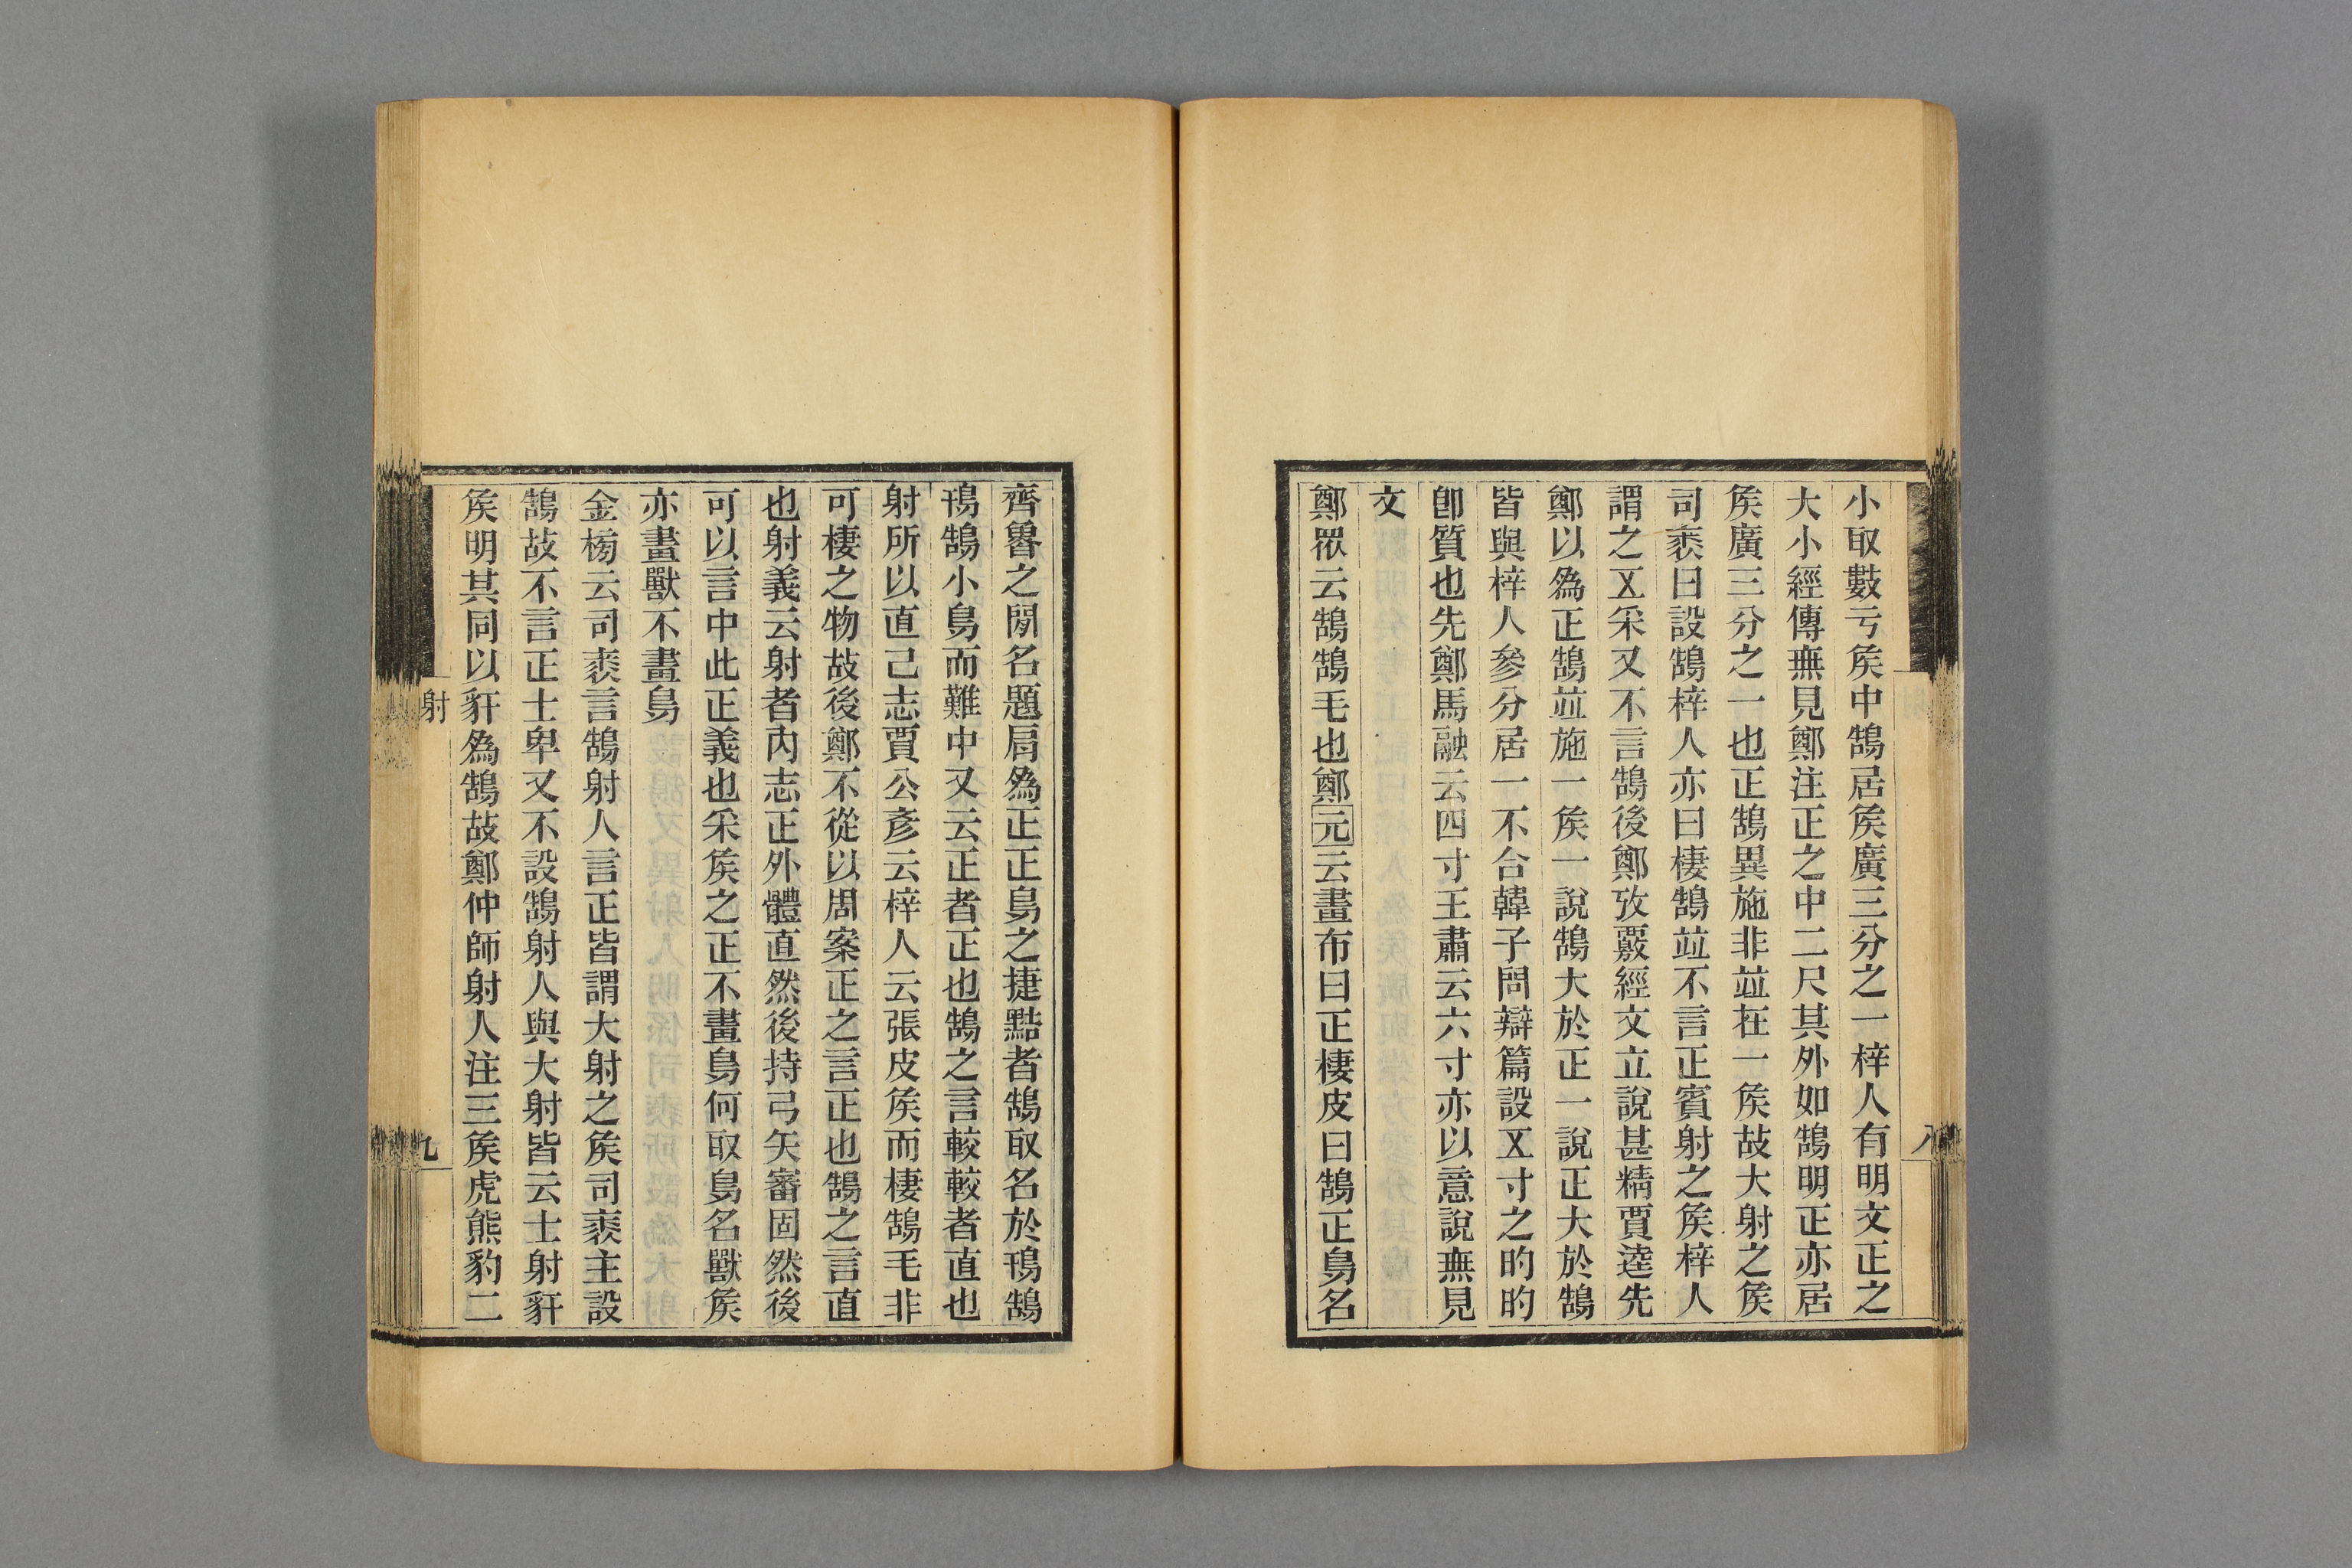 小取數亏矦中鵠居矦廣三分之一梓人有明文正之
大小經傳無見鄭注正之中二尺其外如鵠明正亦居
矦廣三分之一也正鵠異施非竝在一矦故大射之矦
司裘曰設鵠梓人亦曰棲鵠竝不言正賓射之矦梓人
謂之五采又不言鵠後鄭攷覈經文立說甚精賈逵先
鄭以為正鵠竝施一矦一說鵠大於正一說正大於鵠
皆與梓人參分居一不合韓子問辯篇設五寸之的的
卽質也先鄭馬融云四寸王肅云六寸亦以意說無見
文
鄭眾云鵠鵠毛也鄭元云畫布曰正棲皮曰鵠正鳥名
八
齊魯之閒名題肩為正正鳥之捷黠者鵠取名於鳱鵠
鳱鵠小鳥而難中又云正者正也鵠之言較較者直也
射所以直己志賈公彥云梓人云張皮矦而棲鵠毛非
可棲之物故後鄭不從以周案正之言正也鵠之言直
也射義云射者內志正外體直然後持弓矢審固然後
可以言中此正義也采矦之正不畫鳥何取鳥名獸矦
亦畫獸不畫鳥
金榜云司裘言鵠射人言正皆謂大射之矦司裘主設
鵠故不言正士卑又不設鵠射人與大射皆云士射豻
矦明其同以豻為鵠故鄭仲師射人注三矦虎熊豹二
射
九